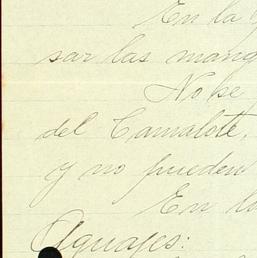 En la
sar las mang
No se
del Camalote,
y no pueden
En la
Aguajes: